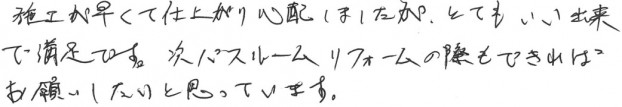 施工が早くて仕上がり心配しましたが、とてもいい出来
で満足です。次バスルームリフォームの際もできれば
お願いしたいと思っています。